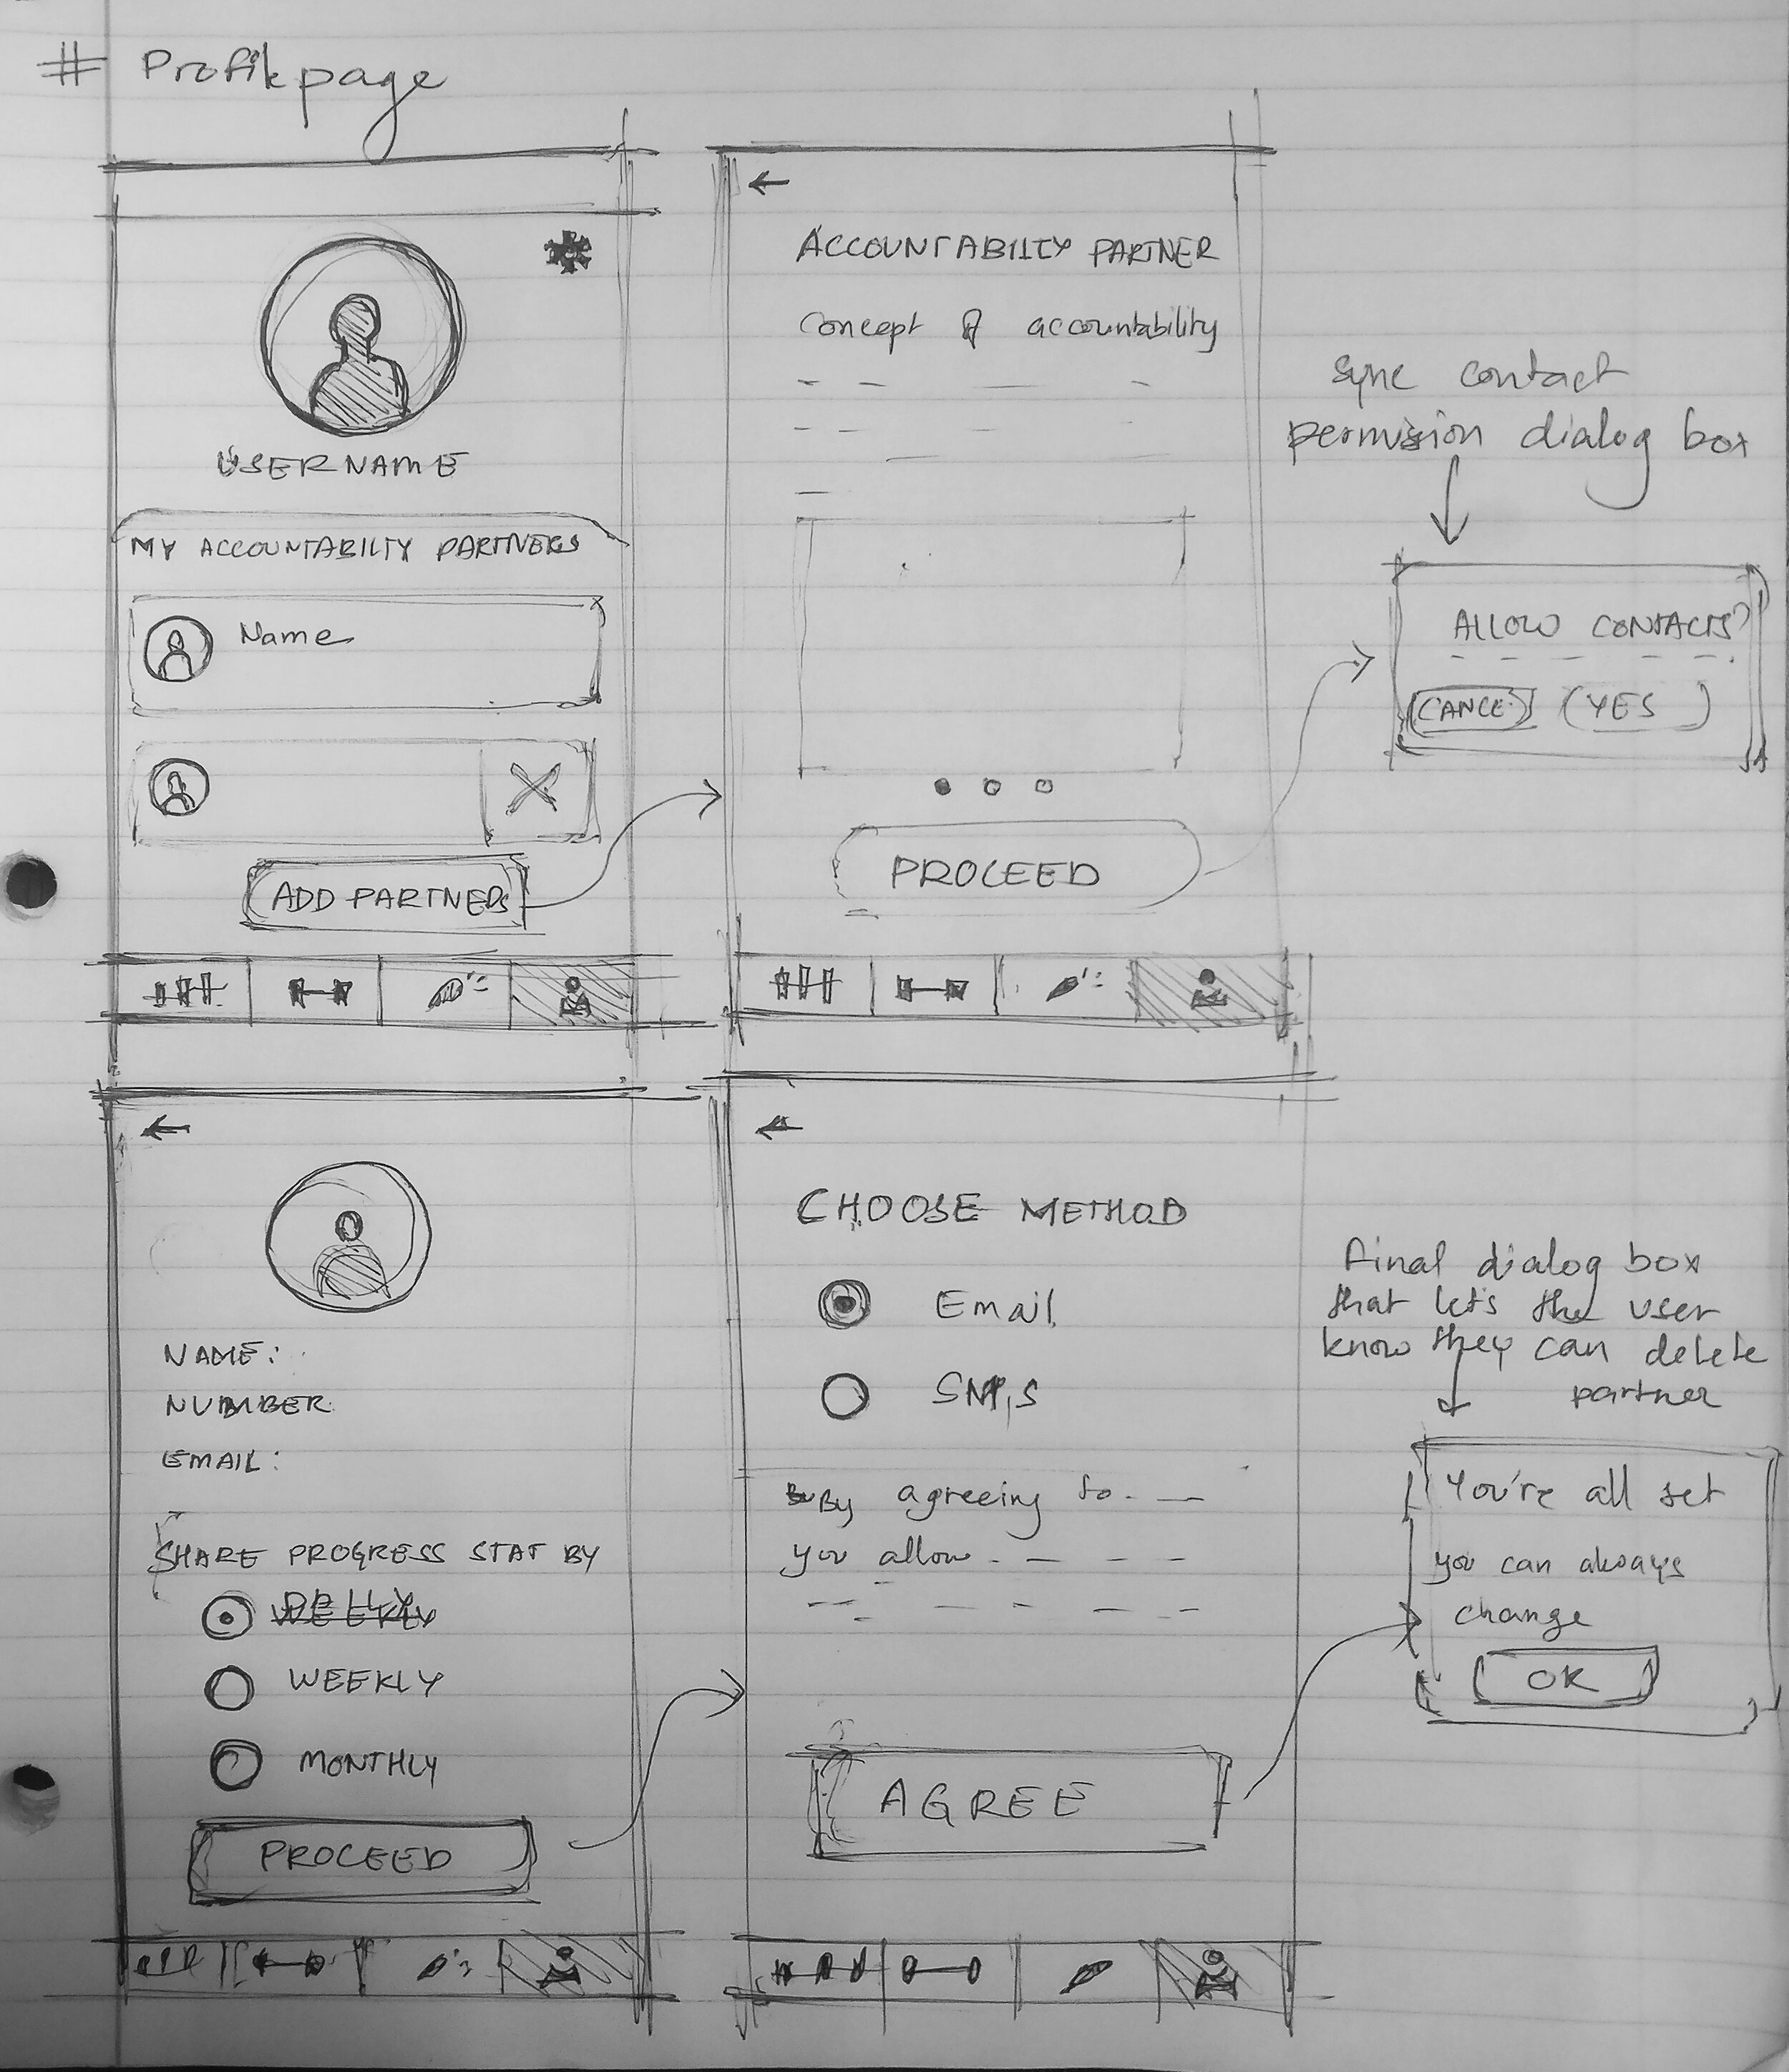 # Profile page
USERNAME
MY ACCOUNTABILTY PARTNERS
Name
ADD PARTNERS
ACCOUNTABILTY PARTNER
Concept of accountability
PROCEED
Sync contact
permission dialog box
ALLOW CONTACTS?
CANCEL
YES
NAME:
NUMBER
EMAIL:
SHARE PROGRESS STAT BY
DAILY
WEEKLY
MONTHLY
PROCEED
CHOOSE METHOD
Email
SMS
By agreeing to
you allow
AGREE
Final dialog box
that let's the user
know they can delete
partner
You're all set
you can always
change
OK